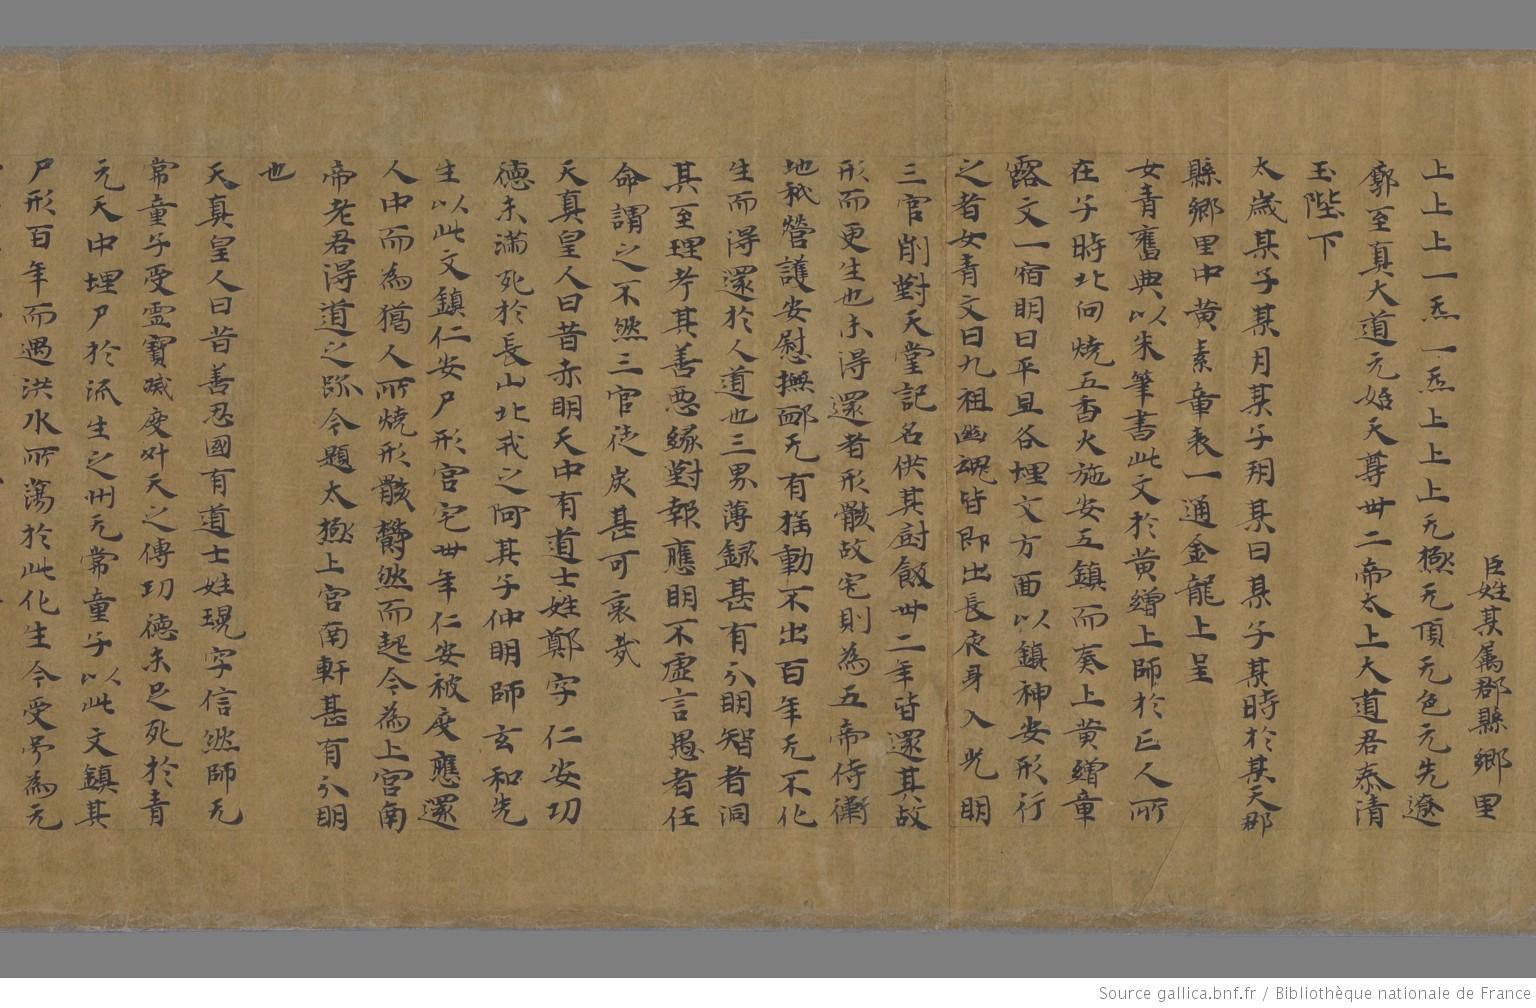 臣姓某属郡縣鄉里
上上上一炁一炁上上上无極无頂无色无先遼
廓至真大道元始天尊卅二帝太上大道君泰清
玉陛下
太歲某子某月某子朔某日某子某時於某天郡
縣鄉里中黄素章表一通金龍上呈
女青舊典以朱筆書此文於黄繒上師於亡人所
在子時北向燒五香火施安五鎮而奏上黄繒章
露文一宿明日平旦各埋文方面以鎮神安形行
之者女青文曰九祖幽魂皆即出長夜身入光明
三官削對天堂記名供其厨飯卅二年皆還其故
形而更生也未得還者形骸故宅則為五帝侍衛
地祇營護安慰撫䘏无有揺動不出百年无不化
生而得還於人道也三界薄錄甚有分明智者洞
其至理考其善惡緣對報應明不虛言愚者任
命謂之不然三官徒炭甚可哀哉
天真皇人曰昔赤明天中有道士姓鄭字仁安功
德未滿死於長山北戎之阿其子仲明師玄和先
生以此文鎮仁安尸形宫宅卅年仁安被度應還
人中而為獦人所燒形骸欝然而起今為上宫南
帝老君得道之跡今題太極上宫南軒甚有分明
也
天真皇人曰昔善忍國有道士姓琨字信然師无
常童子受靈寶滅度升天之傳功德未足死於青
元天中埋尸於流生之州无常童子以此文鎮其
尸形百年而遇洪水所蕩於此化生今受号為元